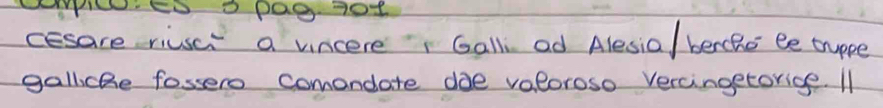 compito: es 3 pag. 701
Cesare riuscì a vincere i Galli ad Alesia/benchè le truppe
galliche fossero comandate dae valoroso Vercingetorige. ||